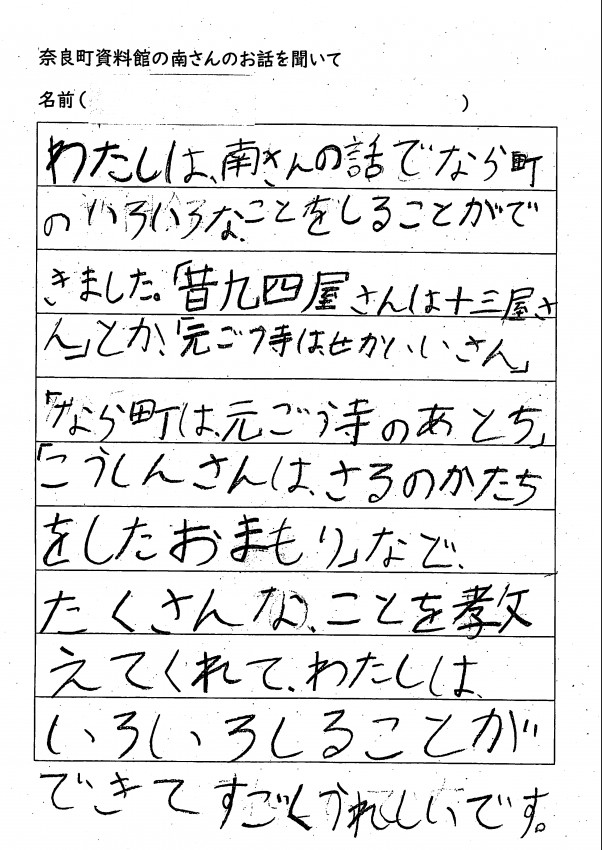 奈良町資料館の南さんのお話を聞いて
名前( )
わたしは、南さんの話でなら町
のいろいろな、ことをしることがで
きました。「昔九四屋さんは十三屋さ
ん」とか、「元ごう寺はせかいいさん」
「なら町は、元ごう寺のあとち」
「こうしんさんは、さるのかたち
をしたおまもり」など、
たくさんな、ことを教
えてくれて、わたしは、
いろいろしることが
できてすごくうれしいです。